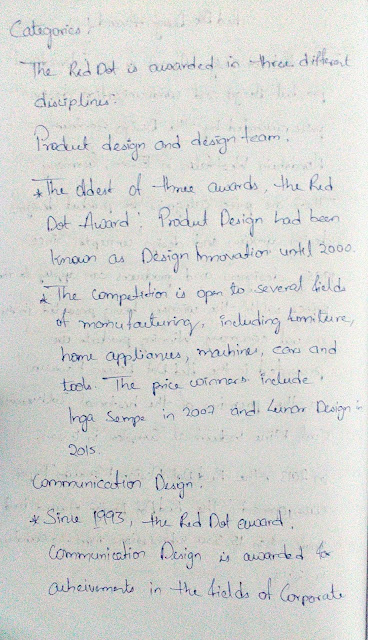 Categories:
The Red Dot is awarded in three different
disciplines.
Product design and design team.
* The oldest of three awards, the Red
Dot Award: Product Design had been
known as Design Innovation until 2000.
* The competition is open to several fields
of manufacturing, including furniture,
home appliances, machines, cars and
tools. The price winners include
Inga Sempe in 2007 and Lunar Design in
2015.
Communication Design:
* Since 1993, the Red Dot award.
Communication Design is awarded for
acheivements in the fields of Corporate